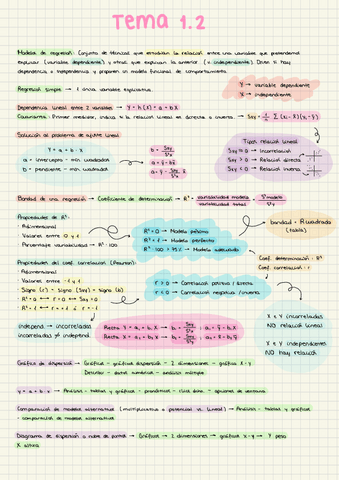 Tema 1.2
Modelos de regresión: Conjunto de técnicas que estudian la relación entre una variable que pretendemos
explicar (variable dependiente) y otras que explican la anterior (v. independiente). Dicen si hay
dependencia o independencia y proponen un modelo funcional de comportamiento.
Regresión simple → 1 única variable explicativa.
Y → variable dependiente
X → independiente
Dependencia lineal entre 2 variables → Y = h(X) = a + bX
Covarianza: Primer medidor, indica si la relación lineal es directa o inversa. →
Solución al problema de ajuste lineal
Y = a + b · X
a = intercepto - mín. cuadrados
b = pendiente - mín. cuadrados
Tipos relación lineal
Sxy = 0 → Incorrelación
Sxy > 0 → Relación directa
Sxy < 0 → Relación inversa
Bondad de una regresión → Coeficiente de determinación → R² = variabilidad modelo / variabilidad total
Propiedades de R²:
- Adimensional
- Valores entre 0 y 1
- Porcentaje variabilidad → R² · 100
R² = 0 → Modelo pésimo
R² = 1 → Modelo perfecto
R² · 100 > 75% → Modelo adecuado
bondad = R cuadrado
(tabla)
Propiedades del coef. correlación (Pearson):
- Adimensional
- Valores entre -1 y 1
- Signo (r) - Signo (Sxy) - signo (b)
- R² = 0 ⟷ r = 0 ⟷ Sxy = 0
- R² = 1 ⟷ r = 1 ó r = -1
r > 0 → Correlación positiva / directa
r < 0 → Correlación negativa / inversa
Coef. determinación - R²
Coef. correlación - r
independ → incorreladas
incorreladas ⇏ independ.
Recta Y = a₁ + b₁ X →
Recta X = a₂ + b₂ Y →
X e Y incorreladas
NO relación lineal
X e Y independientes
NO hay relación
Gráfico de dispersión → Gráficos - gráficos dispersión - 2 dimensiones - gráfico X-Y
Describir - datos numéricos - análisis múltiple
y = a + b · x → Análisis - tablas y gráficos - pronósticos - click dcho. - opciones de ventana
Comparación de modelos alternativos (multiplicativo o potencial vs. lineal) → Análisis - tablas y gráficos
- comparación de modelos alternativos
Diagrama de dispersión o nube de puntos → Gráficos → 2 dimensiones → gráfico x-y → Y peso
X altura